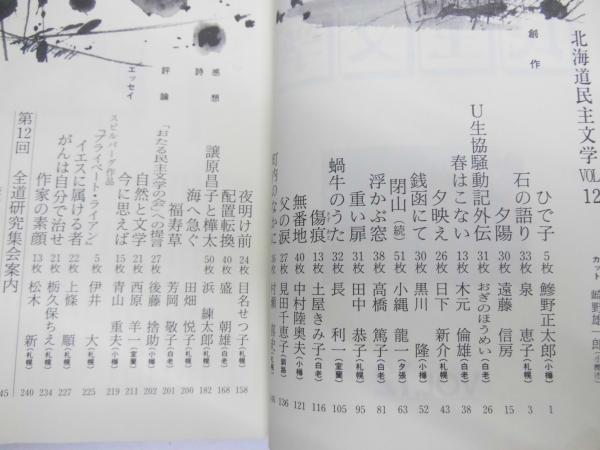 北海道民主文学 VOL.12
カット 崎野雄一郎
創作
ひで子 5枚 鰺野正太郎(小樽) 1
石の語り 33枚 泉恵子(札幌) 3
夕陽 30枚 遠藤信房 15
U生協騒動記外伝 31枚 おぎのほうめい(白老) 26
春はこない 13枚 木元倫雄(白老) 38
夕映え 26枚 日下新介(小樽) 43
銭函にて 30枚 黒川隆(小樽) 52
閉山(続) 51枚 小縄龍一(夕張) 63
浮かぶ窓 38枚 高橋篤子(白老) 81
重い扉 31枚 田中恭子(札幌) 95
蝸牛のうた 32枚 長利一(室蘭) 105
傷痕 13枚 土屋きみ子(小樽) 116
無番地 40枚 中村陸奥夫(小樽) 121
父の涙 27枚 見田千恵子(釧路) 136
町内のなかに
夜明け前 24枚 目名せつ子(札幌) 158
配置転換 40枚 盛朝雄(白老) 168
譲原昌子と樺太 50枚 浜練太郎(札幌) 182
詩
海へ急ぐ 田畑悦子(札幌) 200
感想
福寿草 芳岡敬子(白老) 201
評論
「おたる民主文学の会」への提言 27枚 後藤捨助(小樽) 202
自然と文学 21枚 西原羊一(室蘭) 211
エッセイ
今に思えば 15枚 青山重夫(小樽) 219
スピルバーグ作品
「プライベート・ライアン」 5枚 伊井大(札幌) 225
イエスに属ける者 22枚 上條順(札幌) 227
がんは自分で治せ 21枚 栃久保ちえ(札幌) 234
作家の素顔 13枚 松木新(札幌) 240
第12回 全道研究集会案内 245